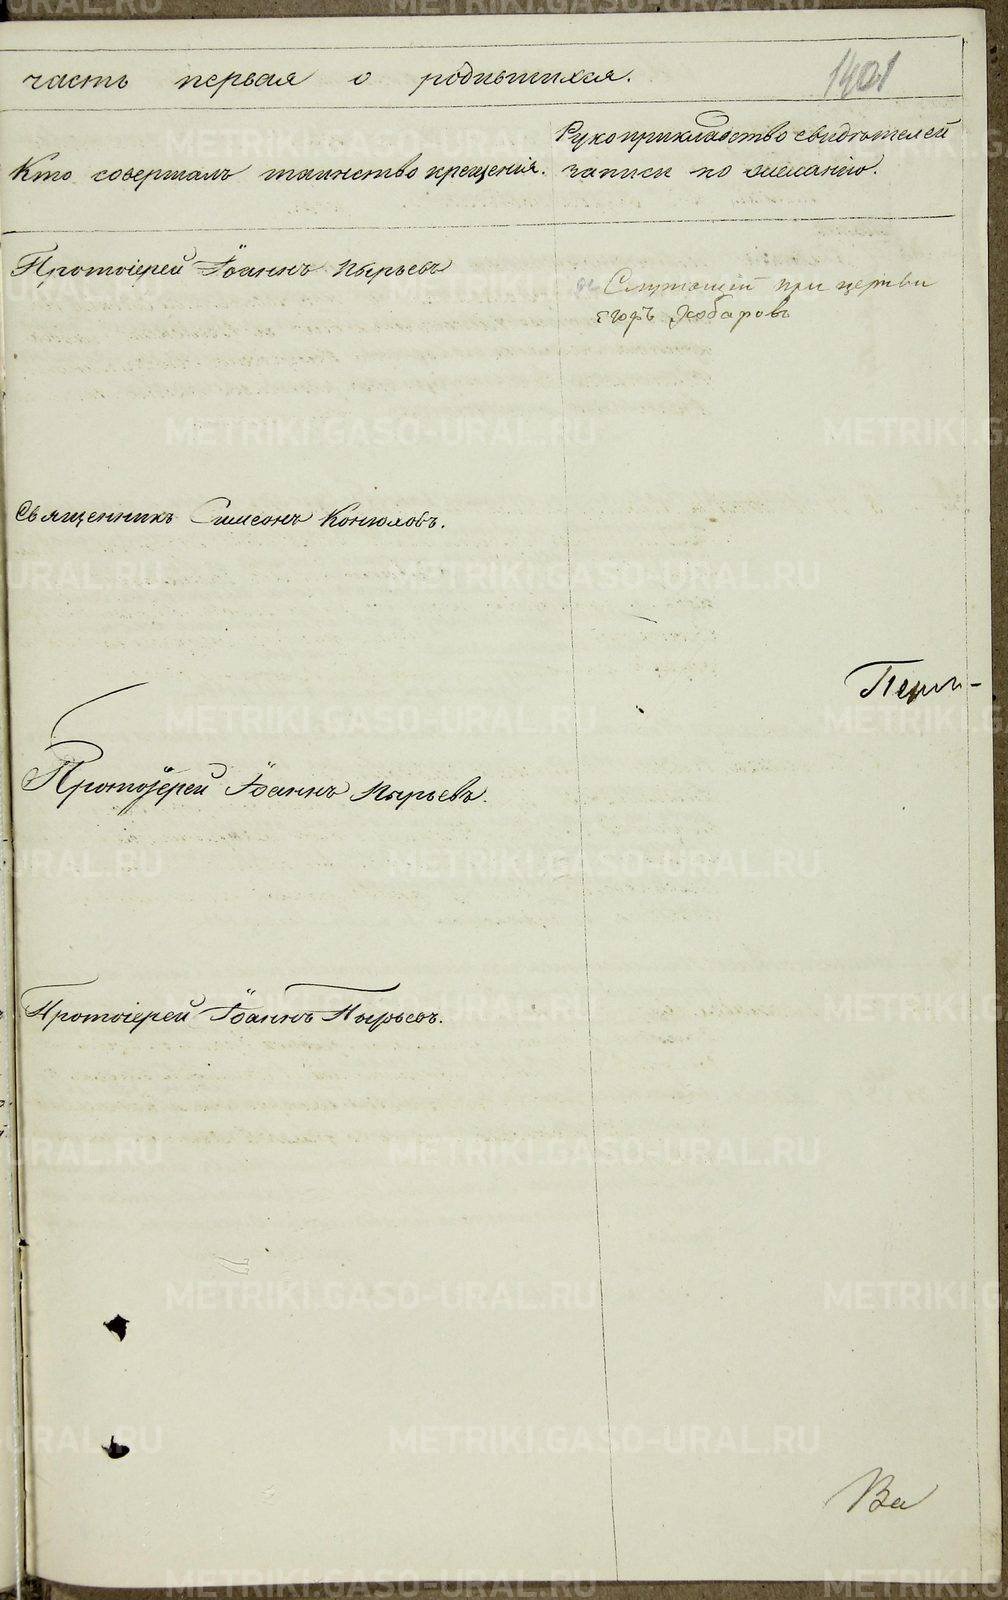 часть первая о родившихся.
1401
Кто совершалъ таинство крещенія.
Рукоприкладство свидѣтелей
записи по желанію.
Протоіерей Іоаннъ Пырьевъ
Служащій при церкви
Егоръ Хобаровъ
Священникъ Симеонъ Конюховъ.
Перм-
Протоіерей Іоаннъ Пырьевъ.
Протоіерей Іоаннъ Пырьевъ.
Ва
METRIKI.GASO-URAL.RU